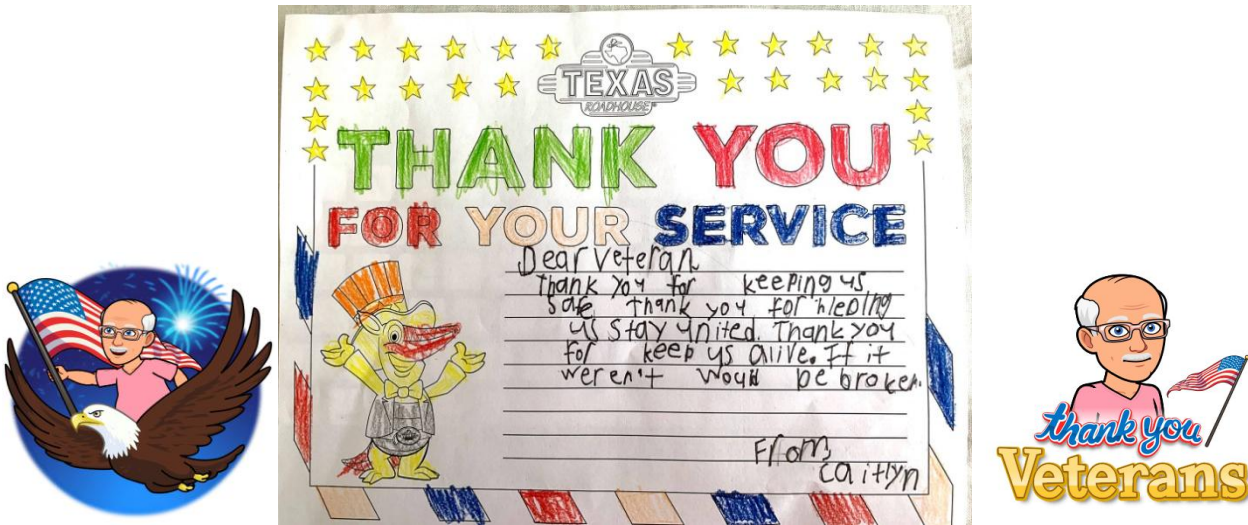 TEXAS
ROADHOUSE
THANK YOU
FOR YOUR SERVICE
Dear Veteran
Thank you for keeping us
safe thank you for hleping
us Stay united. Thank you
for keep us alive. If it
weren't woul be broken.
From
Caitlyn
thank you
Veterans